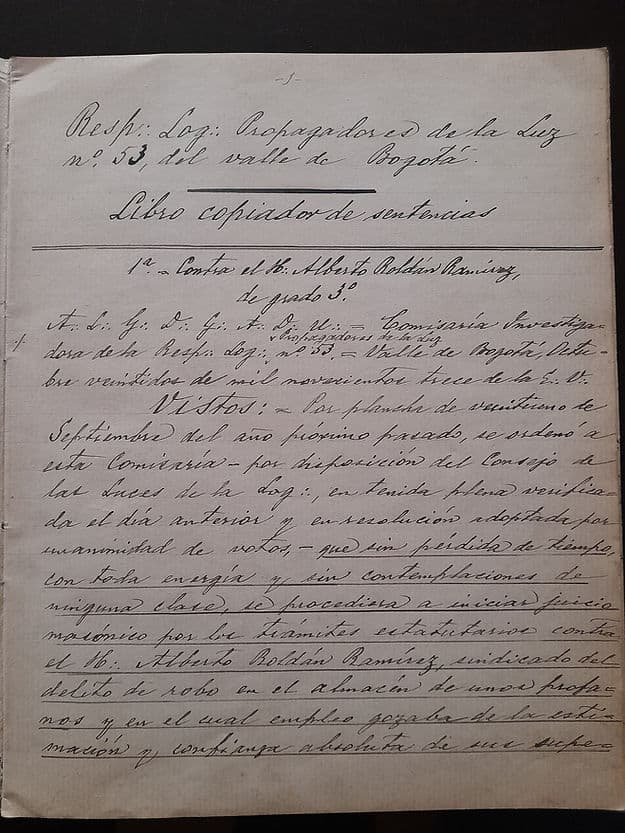 -1-
Resp∴ Log∴ Propagadores de la Luz
nº. 53, del valle de Bogotá.
Libro copiador de sentencias
1ª. = Contra el H∴ Alberto Roldán Ramírez,
de grado 3º.
A∴ L∴ G∴ D∴ G∴ A∴ D∴ U∴ = Comisaría Investiga-
Propagadores de la Luz
dora de la Resp∴ Log∴ nº 53. = Valle de Bogotá, Octu-
bre veintidos de mil novecientos trece de la E∴ V∴
Vistos: = Por plancha de veintiuno de
Septiembre del año próximo pasado, se ordenó a
esta Comisaría - por disposición del Consejo de
las Luces de la Log∴, en tenida plena verifica-
da el día anterior y en resolución adoptada por
unanimidad de votos, - que sin pérdida de tiempo,
con toda energía y sin contemplaciones de
ninguna clase, se procediera a iniciar juicio
masónico por los trámites estatutarios contra
el H∴ Alberto Roldán Ramírez, sindicado del
delito de robo en el almacén de unos profa-
nos y en el cual empleo gozaba de la esti-
mación y confianza absoluta de sus supe-